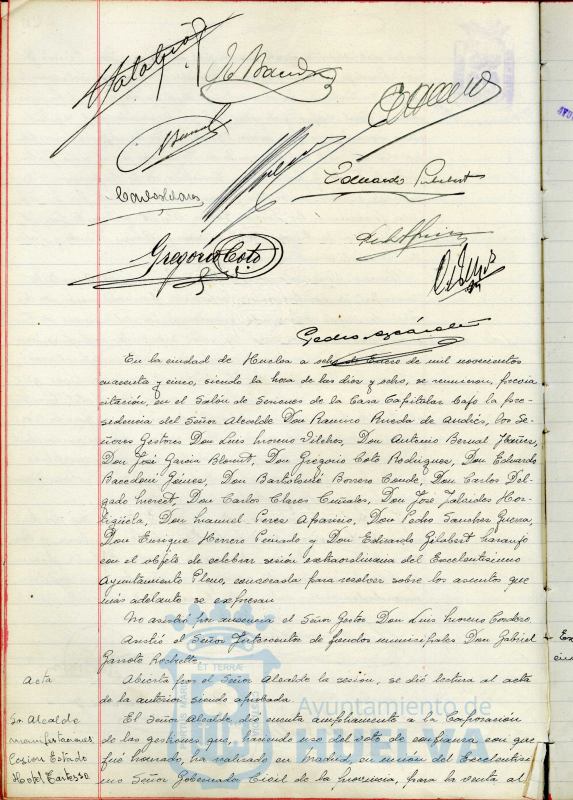 Gregorio Coto
Eduardo
Pedro
En la ciudad de Huelva a ocho de Enero de mil novecientos
cuarenta y cinco, siendo la hora de las diez y ocho, se reunieron, previa
citación, en el Salón de Sesiones de la Casa Capitular bajo la pre-
sidencia del Señor Alcalde Don Ramiro Pineda de Andrés, los Se-
ñores Gestores Don Luis Moreno Vilches, Don Antonio Bernal
Don José Garcia Blomut, Don Gregorio Coto Rodriguez, Don Eduardo
Don Bartolomé Borrero Conde, Don Carlos Del-
gado Don Carlos Don José
Don Manuel Perez Aparicio, Don Pedro Sanchez Guerra,
Don Enrique Herrero Peinado y Don Eduardo Gilabert
con el objeto de celebrar sesión extraordinaria del Excelentisimo
Ayuntamiento Pleno, convocada para resolver sobre los asuntos que
más adelante se expresan
No asistió por ausencia el Señor Gestor Don Luis Moreno Cordero.
Asistió el Señor Interventor de fondos municipales Don Gabriel
Garrote
Acta
Abierta por el Señor Alcalde la sesión, se dió lectura al acta
de la anterior siendo aprobada
Sr. Alcalde
manifestaciones
Cesion Estado
Hotel Tartesso
El Señor Alcalde, dió cuenta ampliamente a la Corporación
de las gestiones, que, haciendo uso del voto de confianza con que
fué honrado, ha realizado en Madrid, en unión del Excelentisi-
mo Señor Gobernador Civil de la provincia, para la venta al
ET TERRAE
Ayuntamiento de
HUELVA